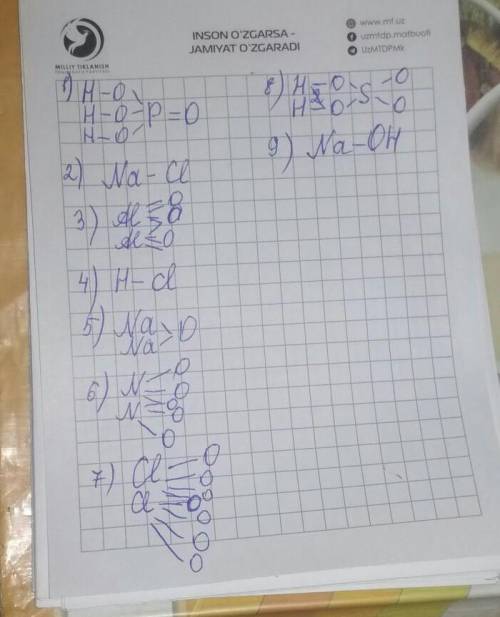 MILLIY TIKLANISH
INSON O'ZGARSA -
JAMIYAT O'ZGARADI
www.mf.uz
uzmtdp.matbuoti
UzMTDPMk
1) H-O
H-O P=O
H-O
2) Na-Cl
3) Al=O
O
Al=O
4) H-Cl
5) Na
Na O
6) N O
O
N O
O
O
7) Cl O
O
Cl O
O
O
O
O
8) H-O S O
H-O O
9) Na-OH